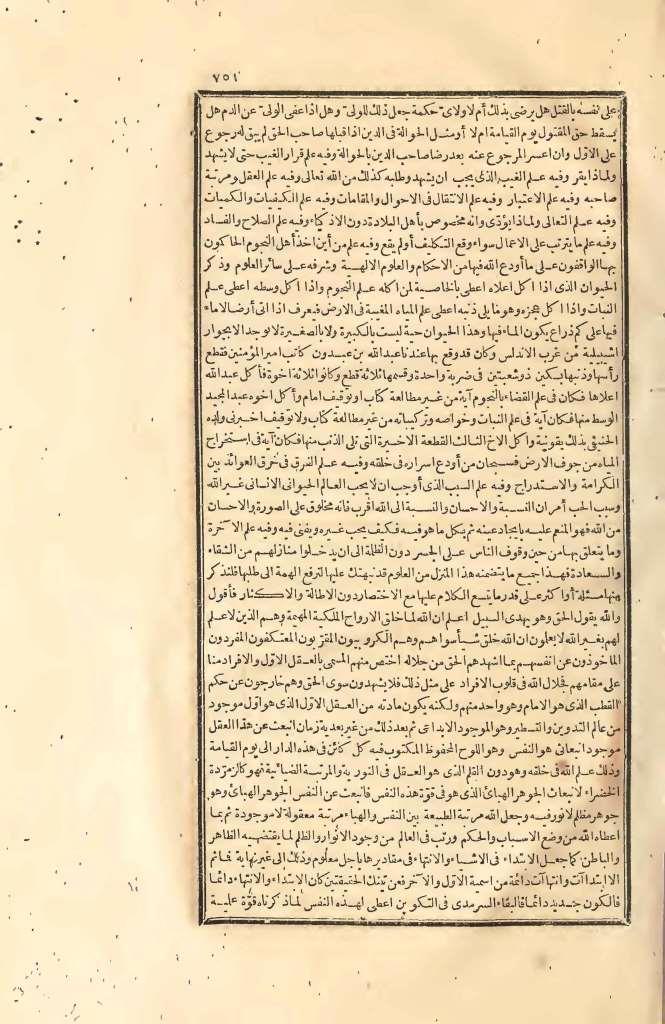 ٧٥١
على نفسه بالقتل هل يرضى بذلك أم لا ولاى حكمة جعل ذلك للولى وهل اذا عفى الولى عن الدم هل
يسقط حق المقتول يوم القيامة ام لا أو مثل الحوالة فى الدين اذا قبلها صاحب الحق لم يبق له رجوع
على الاول وان اعسر المرجوع عنه بعد رضا صاحب الدين بالحوالة وفيه علم قرار الغيب حتى لا يشهد
ولماذا يقر وفيه علم الغيب الذى يجب ان يشهد وطلبه كذلك من الله تعالى وفيه علم العقل ومرتبة
صاحبه وفيه علم الاعتبار وفيه علم الانتقال فى الاحوال والمقامات وفيه علم الكيفيات والكميات
وفيه علم التعالى ولماذا يؤدى وانه مخصوص بأهل البلادة دون الاذكياء وفيه علم الصلاح والفساد
وفيه علم ما يترتب على الاعمال سواء وقع التكليف أو لم يقع وفيه علم من أين اخذ أهل النجوم الحاكمون
بها الواقفون على ما أودع الله فيها من الاحكام والعلوم الالهية وشرفه على سائر العلوم وذكر
الحيوان الذى اذا اكل اعلاه اعطى بالخاصية لمن اكله علم النجوم واذا اكل وسطه اعطى علم
النبات واذا اكل عجزه وهو ما يلى ذنبه اعطى علم المياه المغيبة فى الارض فيعرف اذا اتى أرضا لا ماء
فيها على كم ذراع يكون الماء فيها وهذا الحيوان حية ليست بالكبيرة ولا بالصغيرة لا توجد الا بجوار
اشبيلية من غرب الاندلس وكان قد وقع بها عندنا عبد الله بن عبدون كاتب امير المؤمنين فقطع
رأسها وذنبها بسكين ذو شعبتين فى ضربة واحدة وقسمها ثلاثة قطع وكانوا ثلاثة اخوة فأكل عبد الله
اعلاها فكان فى علم القضاء بالنجوم آية من غير مطالعة كتاب او توقيف امام وأكل اخوه عبد المجيد
الوسط منها فكان آية فى علم النبات وخواصه وتركيباته من غير مطالعة كتاب ولا توقيف اخبرنى ولده
بذلك بقونية واكل الاخ الثالث القطعة الاخيرة التى تلى الذنب منها فكان آية فى استخراج
المياه من جوف الارض فسبحان من أودع اسراره فى خلقه وفيه علم الفرق فى خرق العوائد بين
الكرامة والاستدراج وفيه علم السبب الذى أوجب ان لا يحب العالم الحيوانى الانسانى غير الله
وسبب الحب أمران النسبة والاحسان والنسبة الى الله اقرب فانه مخلوق على الصورة والاحسان
من الله فهو المنعم عليه بايجاد عينه ثم بكل ما هو فيه فكيف يحب غيره ويفنى فيه وفيه علم الآخرة
وما يتعلق بها من حين وقوف الناس على الجسر دون الظلمة الى ان يدخلوا منازلهم من الشقاء
والسعادة فهذا جميع ما يتضمنه هذا المنزل من العلوم قد نبهتك عليها لترفع الهمة الى طلبها فلنذكر
منها مسئلة أو اكثر على قدر ما يقع الكلام عليها مع الاختصار دون الاطالة والاكثار فأقول
والله يقول الحق وهو يهدى السبيل اعلم ان الله لما خلق الارواح الملكية المهيمة وهم الذين لا علم
لهم بغير الله لا يعلمون ان الله خلق شيأ سواهم وهم الكروبيون المقربون المعتكفون المفردون
المأخوذون عن انفسهم بما اشهدهم الحق من جلاله اختص منهم المسمى بالعقل الاول والافراد منا
على مقامهم فجلال الله فى قلوب الافراد على مثل ذلك فلا يشهدون سوى الحق وهم خارجون عن حكم
القطب الذى هو الامام وهو واحد منهم ولكنه يكون مادته من العقل الاول الذى هو اول موجود
من عالم التدوين والتسطير وهو الموجود الابداعى ثم بعد ذلك من غير بعدية زمان انبعث عن هذا العقل
موجود انبعاثى هو النفس وهو اللوح المحفوظ المكتوب فيه كل كائن فى هذه الدار الى يوم القيامة
وذلك علم الله فى خلقه وهو دون القلم الذى هو العقل فى النورية والمرتبة الضيائية فهو كالزمردة
الخضراء لانبعاث الجوهر الهبائى الذى هو فى قوة هذه النفس فانبعث عن النفس الجوهر الهبائى وهو
جوهر مظلم لا نور فيه وجعل الله مرتبة الطبيعة بين النفس والهباء مرتبة معقولة لا موجودة ثم بما
اعطاه الله من وضع الاسباب والحكم ورتب فى العالم من وجود الانوار والظلم لما يقتضيه الظاهر
والباطن كما جعل الابتداء فى الاشياء والانتهاء فى مقاديرها باجل معلوم وذلك الى غير نهاية فما ثم
الا ابتدا آت وانتها آت دائمة من اسميه الاول والآخر فعن تينك الحقيقتين كان الابتداء والانتهاء دائما
فالكون جديد دائما فالبقاء السرمدى فى التكوين اعطى لهذه النفس لما ذكرناه قوة علمية